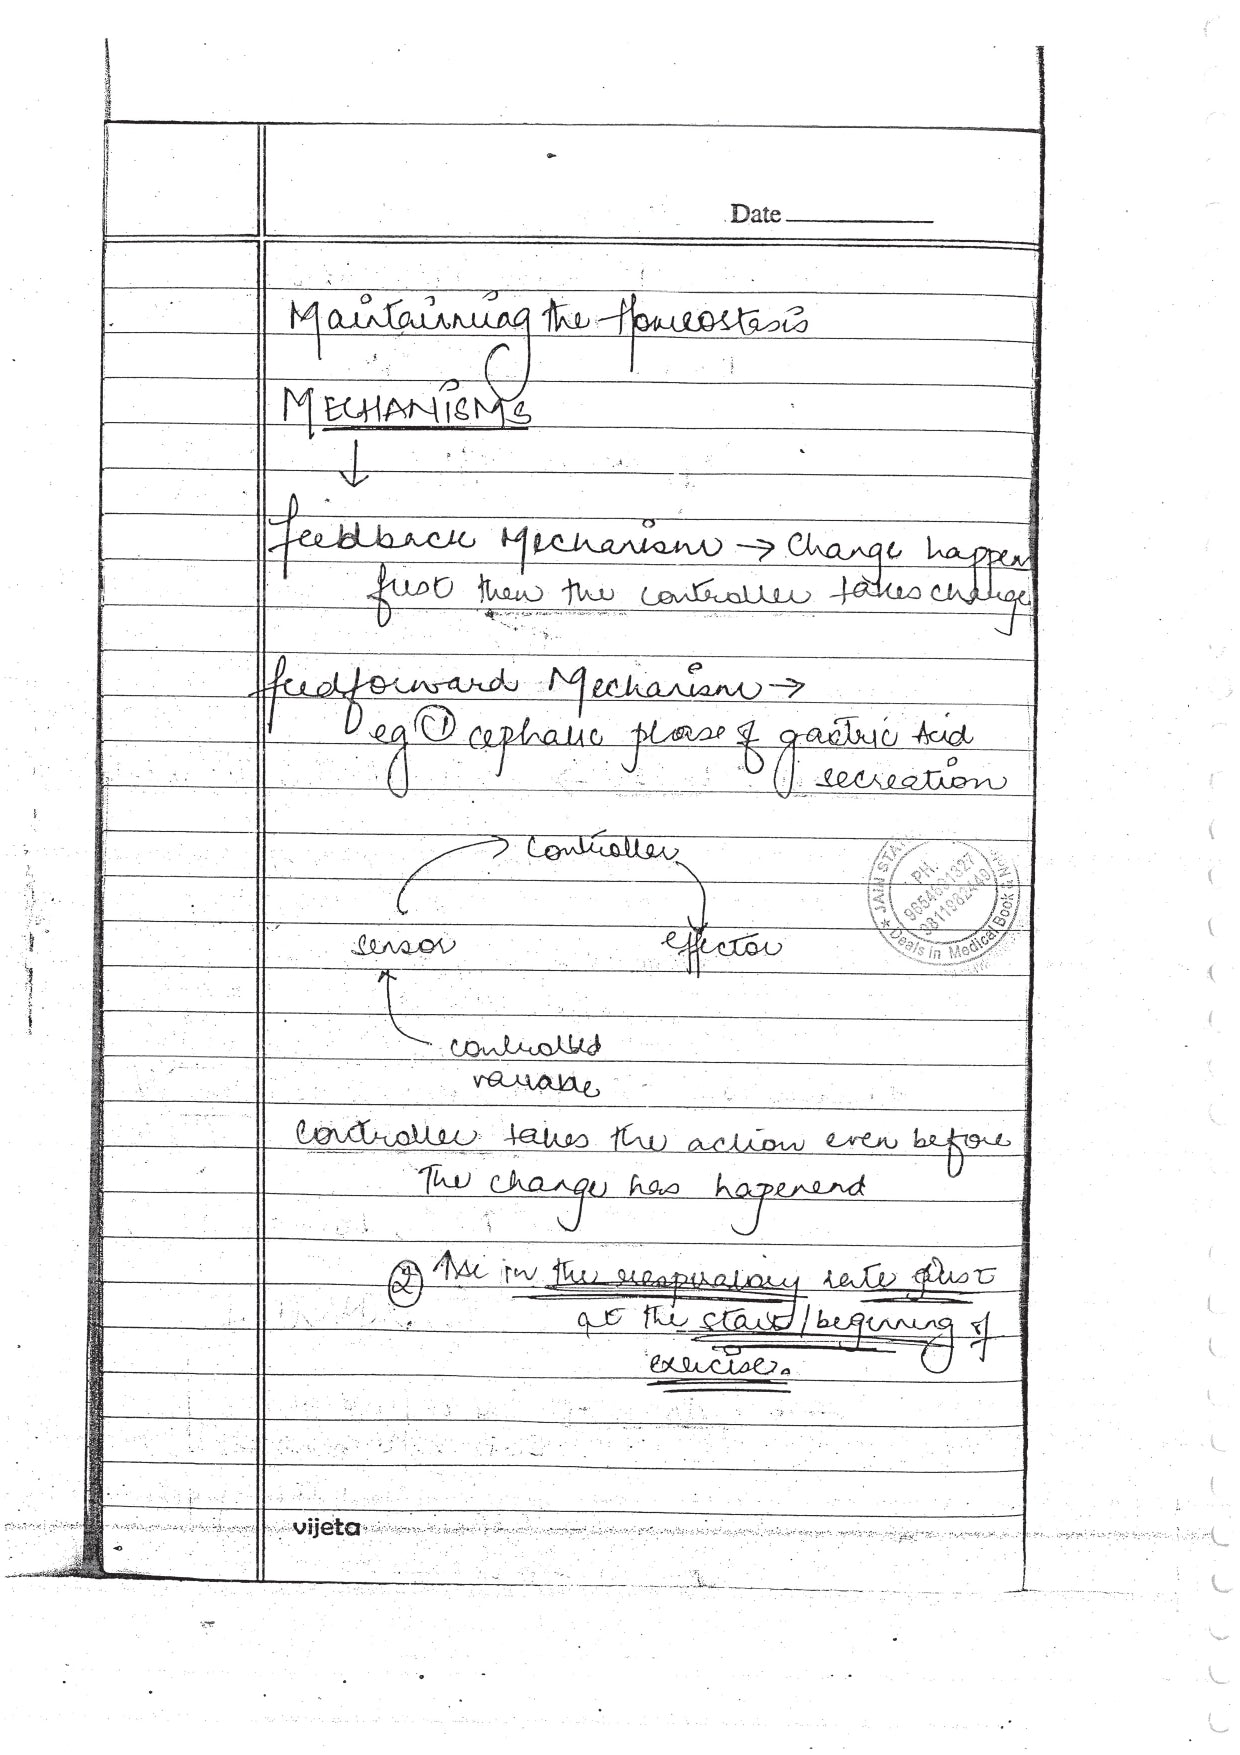 Date
Maintainning the Homeostasis
MECHANISMS
↓
feedback Mechanism → Change happen
first then the controller takes change
feedforward Mechanism →
eg ① cephalic phase of gastric Acid
secreation
controller
sensor effector
controlled
variable
controller takes the action even before
The change has hapenend
② ↑se in the respiratory rate just
at the start/beginning of
exercise.
JAIN STA
PH.
9811982440
★ Deals in Medical Book
vijeta